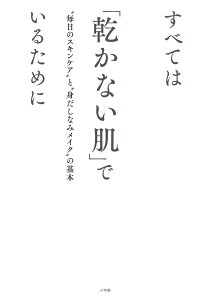 すべては
「乾かない肌」で
いるために
“毎日のスキンケア”と“身だしなみメイク”の基本
小学館